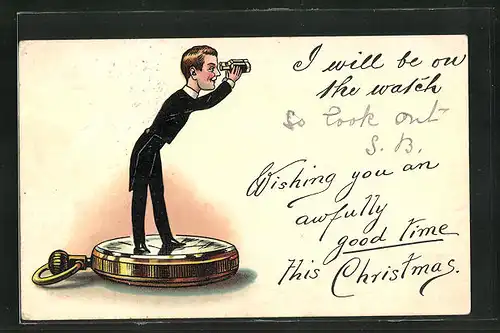 I will be on
the watch
So look out
S. B.
Wishing you an
awfully
good time
this Christmas.